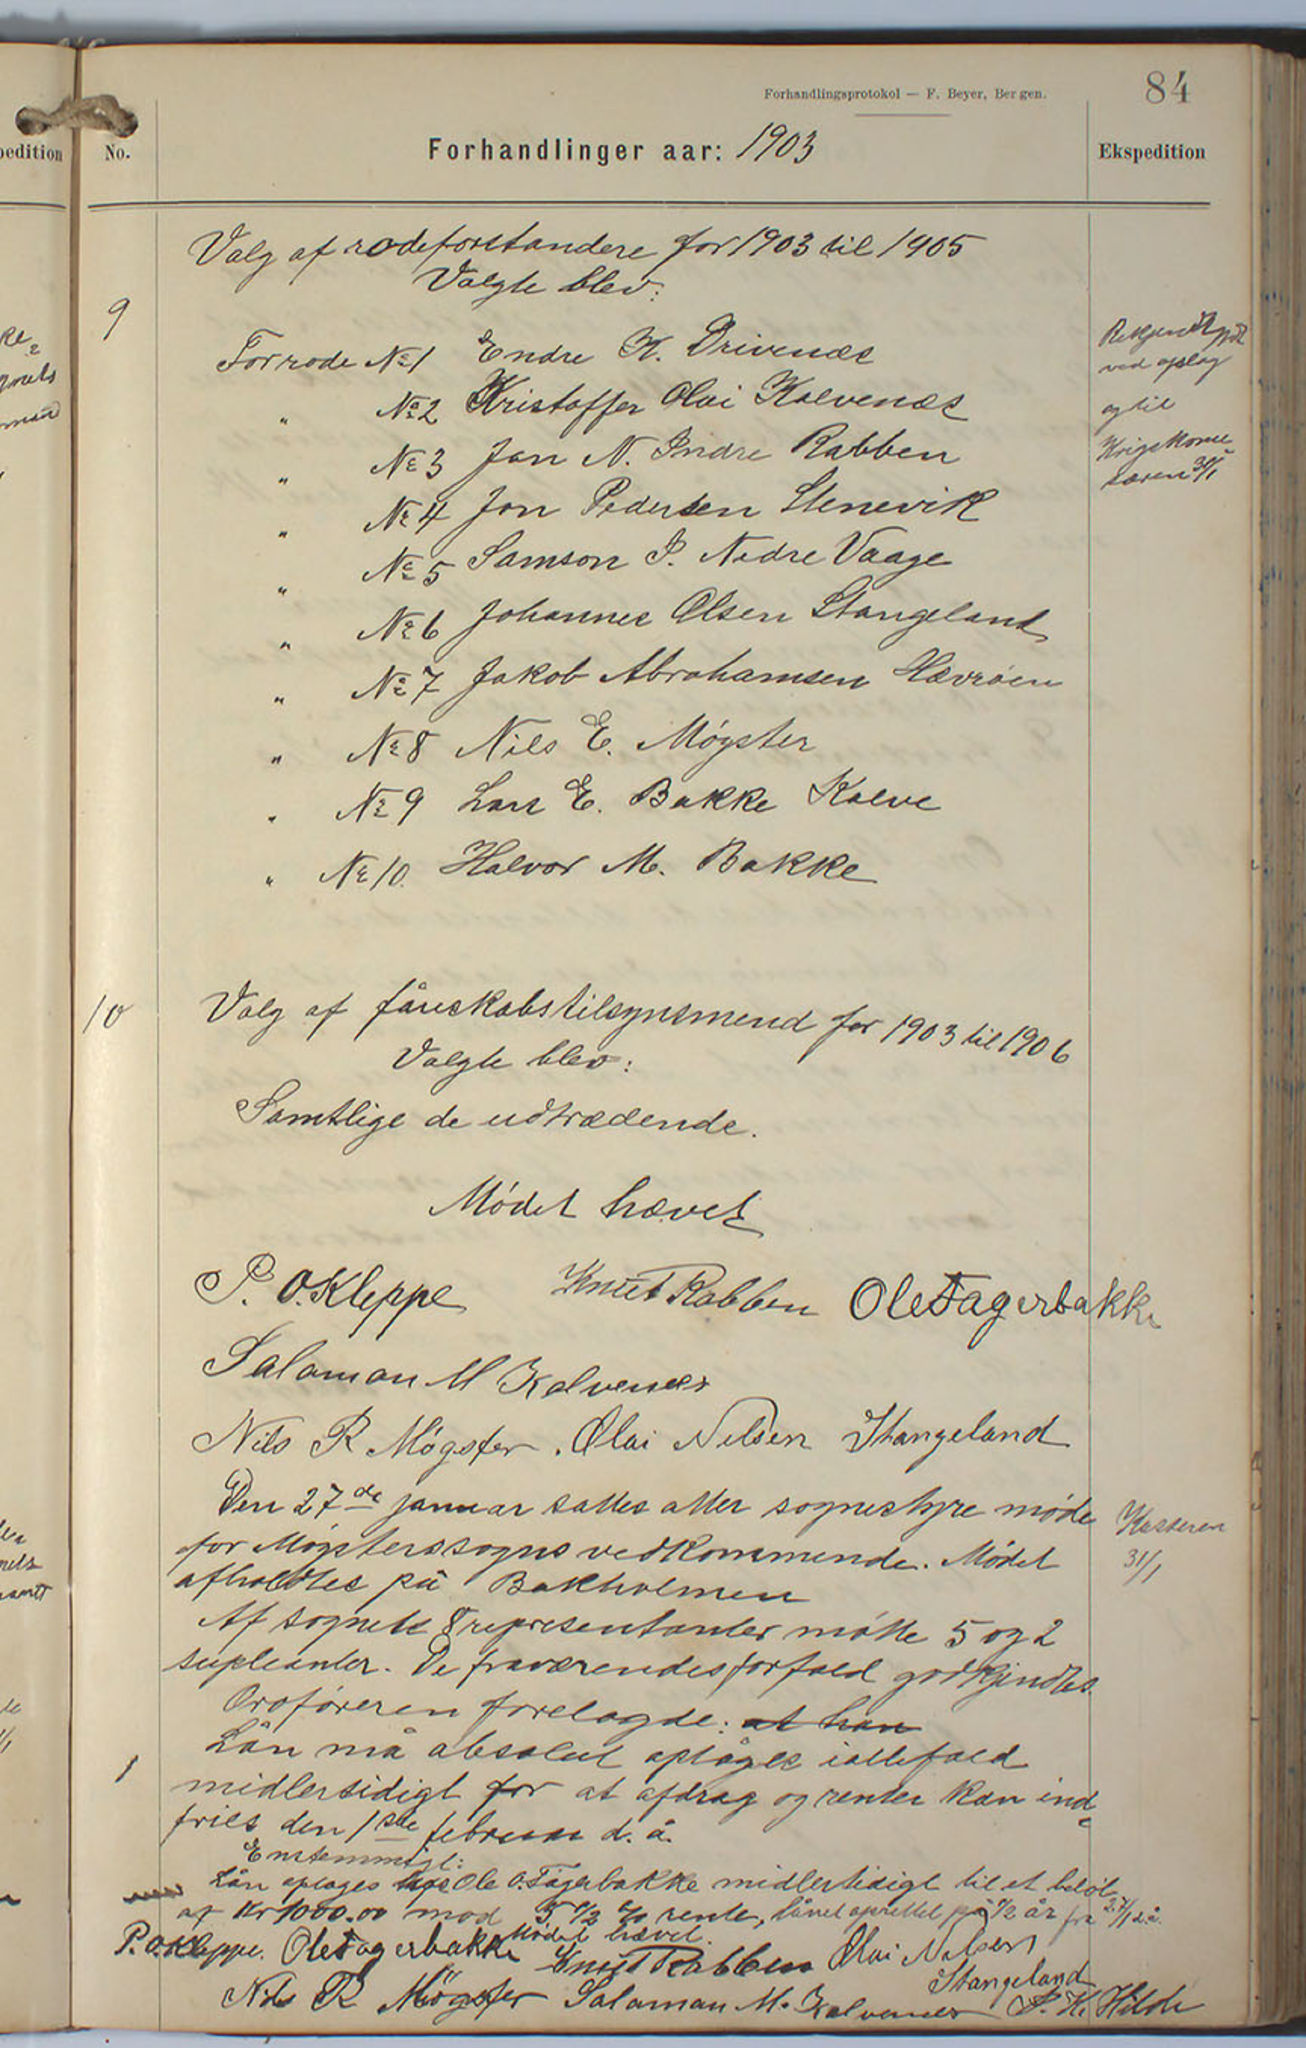 Forhandlingsprotokol — F. Beyer, Bergen.
84
No.
Forhandlinger aar: 1903
Ekspedition
Valg af rodeforstandere for 1903 til 1905
Valgte blev:
9
For rode No 1 Endre K. Drivenæs
" No 2 Kristoffer Olai Kalvenæs
" No 3 Jan N. Indre Rabben
" No 4 Jon Pedersen Stenevik
" No 5 Samson P. Nedre Vaage
" No 6 Johannes Olsen Stangeland
" No 7 Jakob Abrahamsen Hevrøen
" No 8 Nils E. Møgster
" No 9 Lars E. Bakke Kalve
" No 10. Halvor M. Bakke
ved opslag
og til
10
Valg af fåreskabstilsynsmend for 1903 til 1906
Valgte blev:
Samtlige de udtrædende.
Mødet hævet
P. O. Kleppe Knut Rabben Ole Fagerbakke
Salamon M Kalvenes
Nils R Møgster. Olai Nilsen Stangeland
Den 27de januar sattes atter sognestyre møde
for Møgsterssogns vedkommende. Mødet
afholdtes på Bakholmen
Af sognets 8 representanter møtte 5 og 2
supleanter. De fraværendes forfald godkjendtes.
Ordføreren forelagde: at han
1
Lån må absolut optåges iallefald
midlertidigt for at afdrag og renter kan ind-
fries den 1ste februar d. å.
Enstemmigt:
Lån optages hos Ole O. Fagerbakke midlertidigt til et beløb
af Kr 1000.00 mod 5 1/2 % rente, lånet oprettet på 1/2 år fra 27/1 d.å.
Mødet hævet.
Kasseren
31/1
P. O. Kleppe. Ole Fagerbakke Knut Rabben Olai Nilsen
Stangeland
Nils R Møgster Salamon M. Kalvenes P. K. Hilde